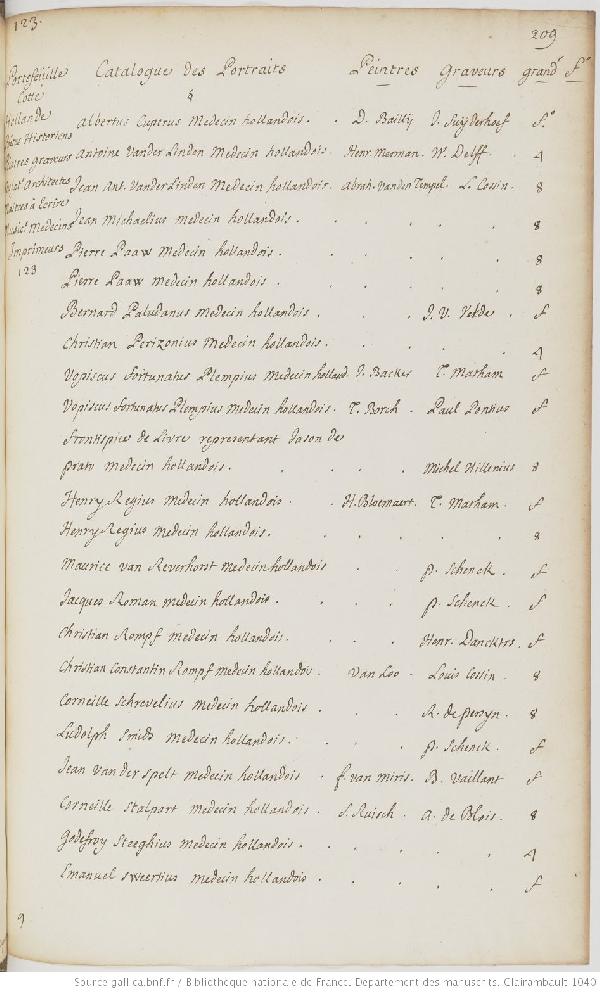 123.
209
Portefeüille Catalogue des Portraits Peintres Graveurs grandr. fo.
Cotté
Hollande
Albertus Cuperus Medecin hollandois. . D. Bailly J. Suÿderhoef fo.
Antoine Vander Linden Medecin hollandois. Henr. Merman. W. Delff. 4
Jean Ant. Vander Linden Medecin hollandois. Abrah. Vanden Tempel. L. Cossin. 8
Jean Michaelius medecin hollandois. . . . . 8
Medecins
Imprimeurs
123
Pierre Paaw medecin hollandois. . . . . 8
Pierre Paaw medecin hollandois. . . . . 8
Bernard Paludanus medecin hollandois. . . J. V. Velde. f
Christian Perizonius medecin hollandois. . . . . 4
Vopiscus Fortunatus Plempius medecin holland. J. Backer T. Matham f
Vopiscus Fortunatus Plempius medecin hollandois. T. Borch. Paul Pontius f
Frontispice de Livre representant Jason de
pratu medecin hollandois. . . . . Michel Hillenius 8
Henry Regius medecin hollandois. . H. Bloemaert. T. Matham. f
Henry Regius medecin hollandois. . . . . 8
Maurice van Reverhorst medecin hollandois . . p. Schenck. f
Jacques Roman medecin hollandois. . . . p. Schenck. f
Christian Rompf medecin hollandois. . . . Henr. Danckers. f
Christian Constantin Rompf medecin hollandois. Van Loo. Louis Cossin. 8
Corneille Schrevelius medecin hollandois . . R. de persyn. 8
Ludolph Smids medecin hollandois. . . p. Schenck. f
Jean vander spelt medecin hollandois . f. van miris. B. Vaillant f
Corneille Stalpart medecin hollandois. S. Ruisch. A. de Blois. 8
Godefroy Steeghius medecin hollandois. . . . . 4
Emanuel Sweertius medecin hollandois . . . . . f
9
Source gallica.bnf.fr / Bibliothèque nationale de France. Département des manuscrits. Clairambault 1040